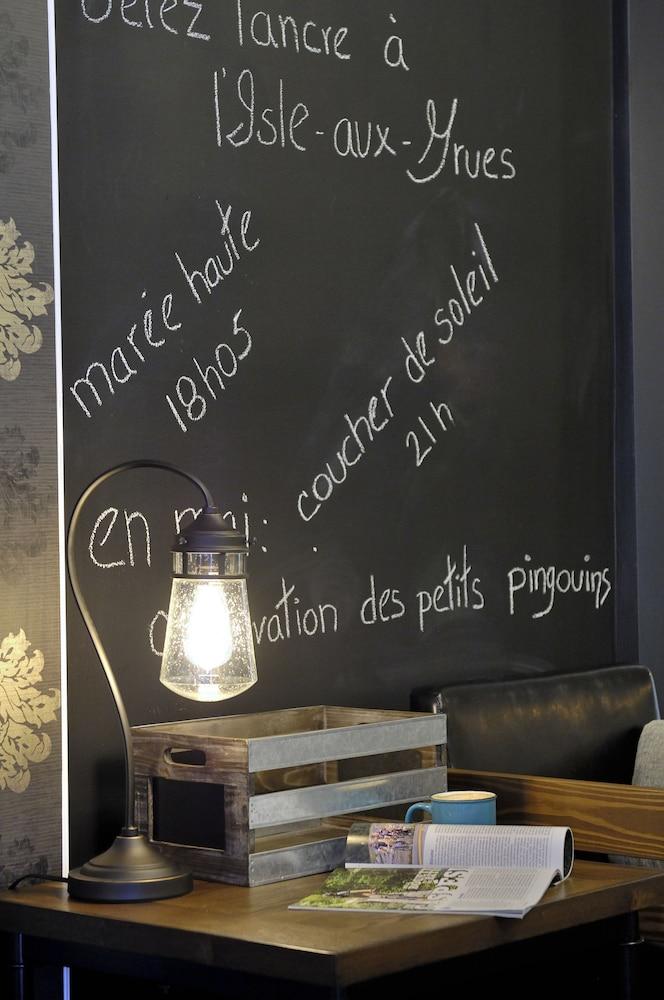 Jetez l'ancre à
l'Isle-aux-Grues
marée haute
18h05
coucher de soleil
21h
en mai:
observation des petits pingouins